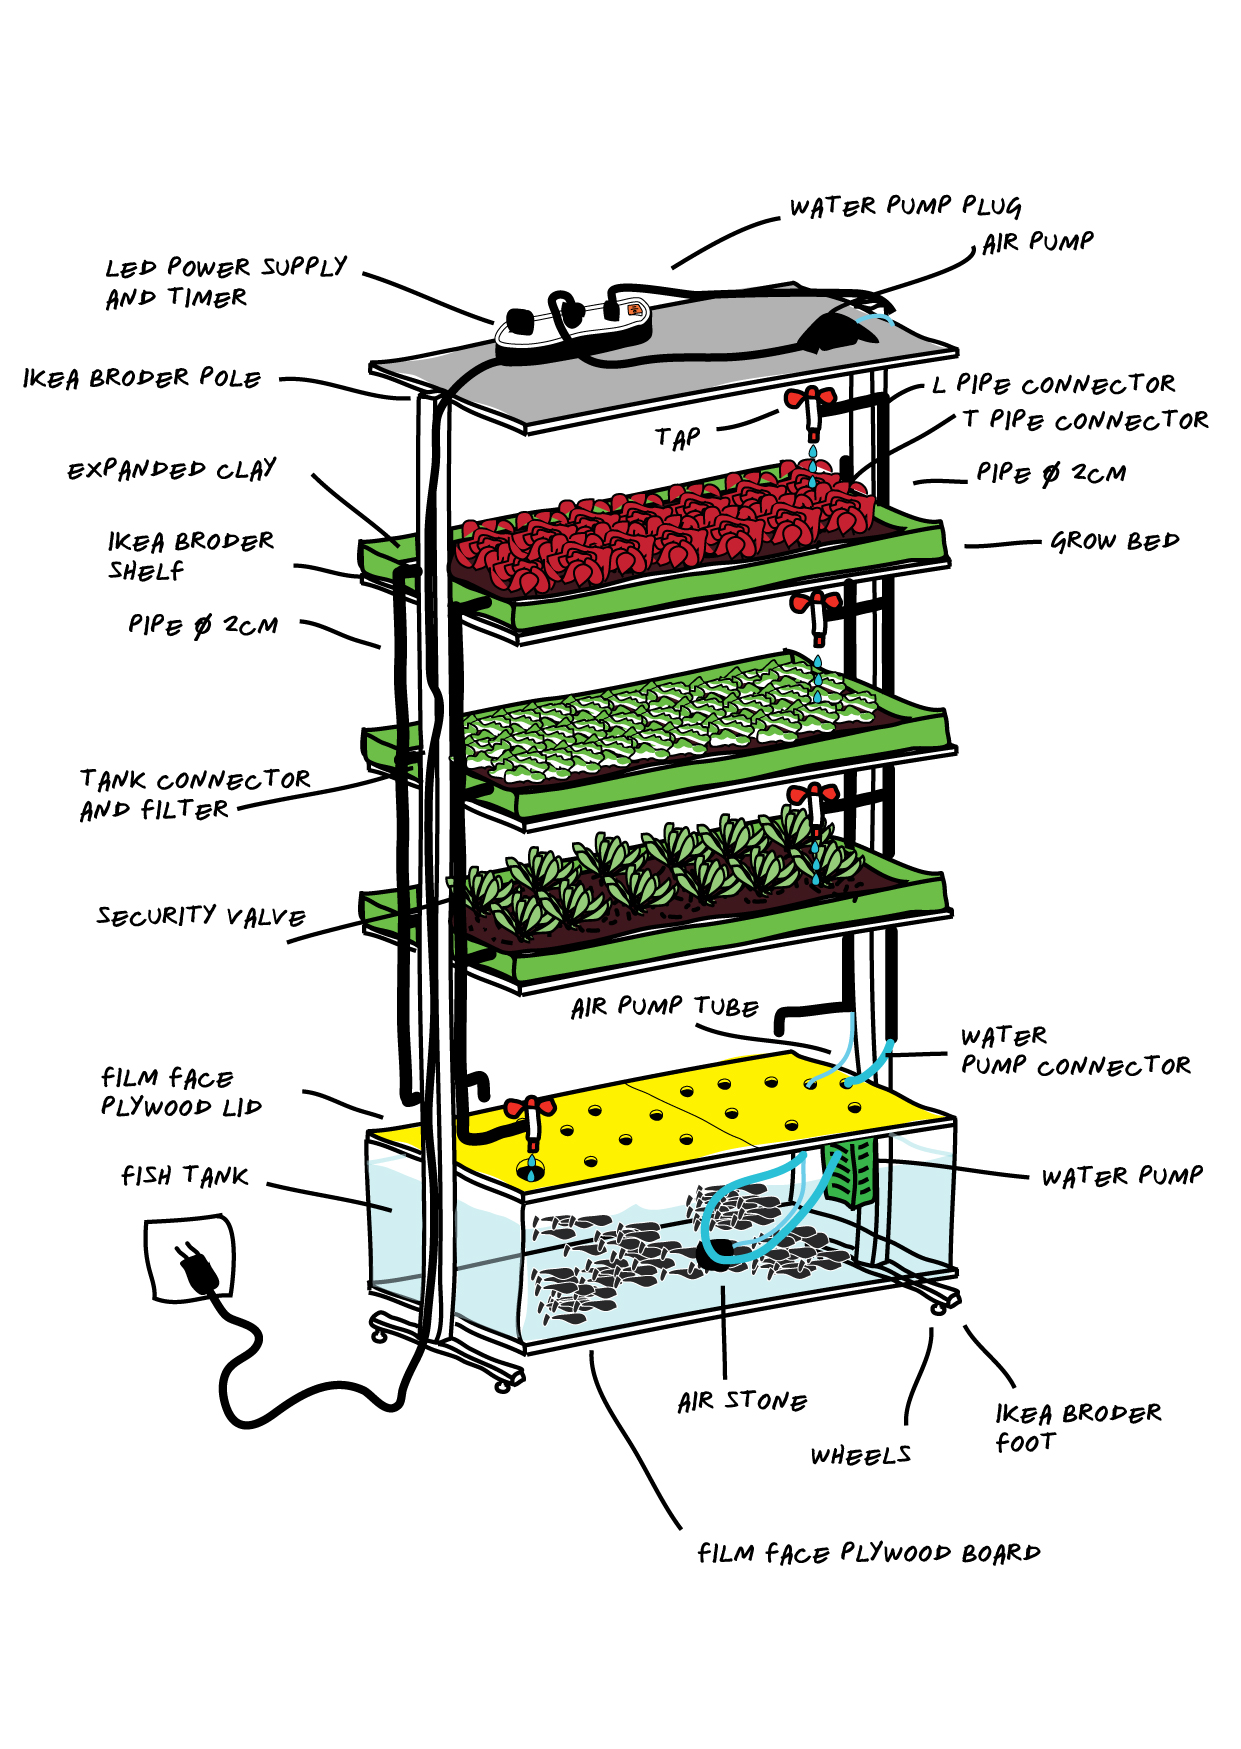 WATER PUMP PLUG
AIR PUMP
LED POWER SUPPLY
AND TIMER
IKEA BRODER POLE
L PIPE CONNECTOR
T PIPE CONNECTOR
TAP
EXPANDED CLAY
PIPE Ø 2CM
IKEA BRODER
SHELF
GROW BED
PIPE Ø 2CM
TANK CONNECTOR
AND FILTER
SECURITY VALVE
AIR PUMP TUBE
WATER
PUMP CONNECTOR
FILM FACE
PLYWOOD LID
FISH TANK
WATER PUMP
AIR STONE
IKEA BRODER
FOOT
WHEELS
FILM FACE PLYWOOD BOARD